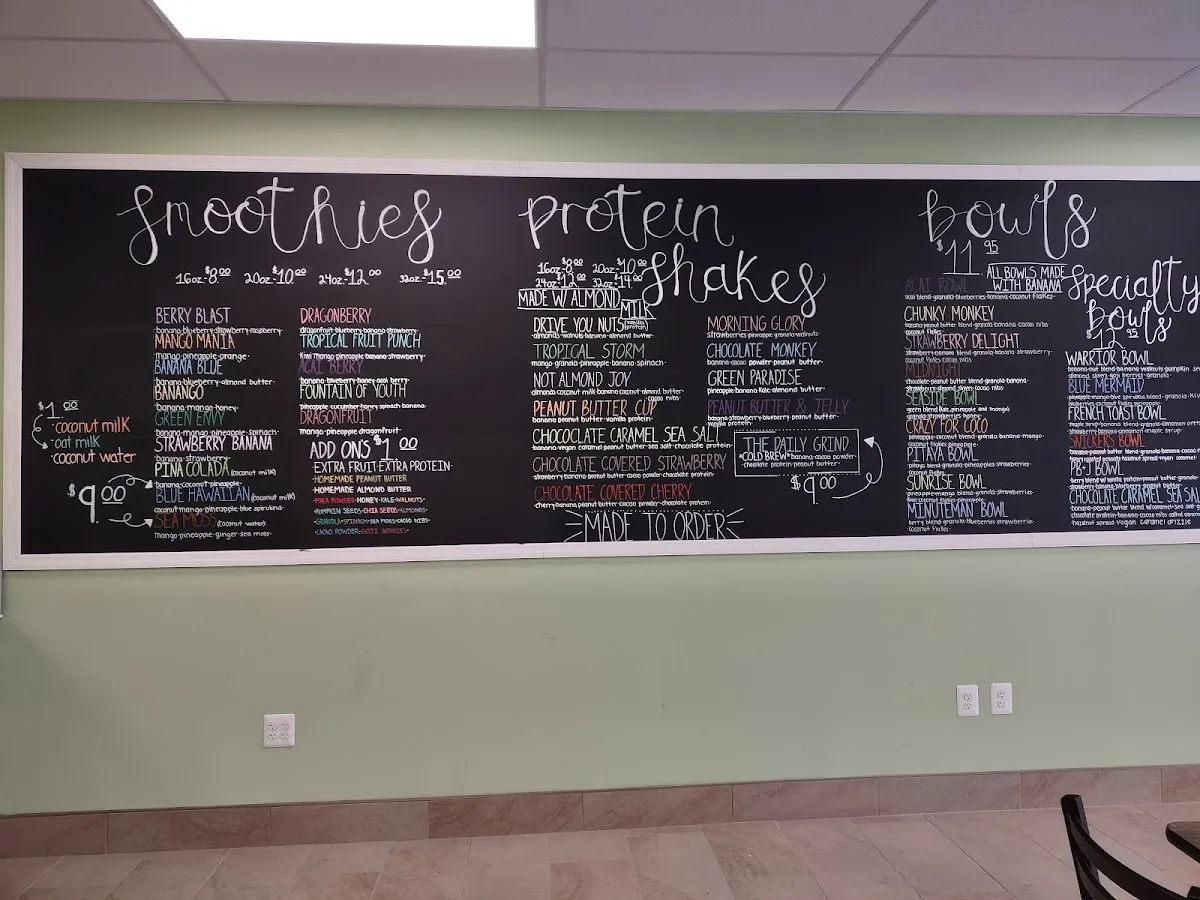 smoothies
16oz-$8.00 20oz-$10.00 24oz-$12.00 32oz-$15.00
BERRY BLAST
banana-blueberry-strawberry-raspberry-
MANGO MANIA
mango-pineapple-orange-
BANANA BLUE
banana-blueberry-almond butter-
BANANGO
banana-mango-honey-
GREEN ENVY
banana-mango-pineapple-spinach-
STRAWBERRY BANANA
banana-strawberry-
PINA COLADA (coconut milk)
banana-coconut-pineapple-
BLUE HAWAIIAN (coconut milk)
coconut-mango-pineapple-blue spirulina-
SEA MOSS (coconut water)
mango-pineapple-ginger-sea moss-
$1.00
·coconut milk
·oat milk
·coconut water
$9.00
DRAGONBERRY
dragonfruit-blueberry-banana-strawberry-
TROPICAL FRUIT PUNCH
kiwi-mango-pineapple-banana-strawberry-
ACAI BERRY
banana-blueberry-honey-acai berry-
FOUNTAIN OF YOUTH
pineapple-cucumber-honey-spinach-banana-
DRAGONFRUIT
mango-pineapple-dragonfruit-
ADD ONS $1.00
·EXTRA FRUIT·EXTRA PROTEIN·
·HOMEMADE PEANUT BUTTER
·HOMEMADE ALMOND BUTTER
·MACA POWDER·HONEY·KALE·WALNUTS·
·PUMPKIN SEEDS·CHIA SEEDS·ALMONDS·
·GRANOLA·SPINACH·SEA MOSS·CACAO NIBS·
·CACAO POWDER·GOJI BERRIES·
protein shakes
16oz-$8.00 20oz-$10.00
24oz-$12.00 32oz-$14.00
MADE W/ ALMOND MILK
DRIVE YOU NUTS
almonds-walnuts-banana-almond butter-
TROPICAL STORM
mango-pineapple-banana-spinach-
NOT ALMOND JOY
almonds-coconut milk-banana-coconut-almond butter-
cacao nibs-
PEANUT BUTTER CUP
banana-peanut butter-vanilla protein-
CHOCOLATE CARAMEL SEA SALT
banana-vegan caramel-peanut butter-sea salt-chocolate protein-
CHOCOLATE COVERED STRAWBERRY
strawberry-banana-peanut butter-cacao powder-chocolate protein-
CHOCOLATE COVERED CHERRY
cherry-banana-peanut butter-cacao powder-chocolate protein-
MADE TO ORDER
MORNING GLORY
strawberries-pineapple-granola-walnuts-
CHOCOLATE MONKEY
banana-cacao powder-peanut butter-
GREEN PARADISE
pineapple-banana-kale-almond butter-
PEANUT BUTTER & JELLY
banana-strawberry-blueberry-peanut butter-
THE DAILY GRIND
*COLD BREW* banana-cacao powder-
-chocolate protein-peanut butter-
$9.00
bowls
$11.95
ALL BOWLS MADE
WITH BANANA
ACAI BOWL
acai blend-granola-blueberries-banana-coconut flakes-
CHUNKY MONKEY
banana-peanut butter blend-granola-banana-cacao nibs
coconut flakes-
STRAWBERRY DELIGHT
strawberry-banana blend-granola-banana-strawberry-
coconut flakes-cacao nibs-
MIDNIGHT
chocolate-peanut butter blend-granola-banana-
strawberry-almond slices-coconut flakes-
SEASIDE BOWL
CRAZY FOR COCO
pineapple-coconut blend-granola-banana-mango-
coconut flakes-pineapple-
PITAYA BOWL
pitaya blend-granola-pineapples-strawberries-
coconut flakes-
SUNRISE BOWL
pineapple-mango blend-granola-strawberries-
MINUTEMAN BOWL
berry blend-granola-blueberries-strawberries-
coconut flakes-
Specialty bowls
$12.95
WARRIOR BOWL
BLUE MERMAID
FRENCH TOAST BOWL
SNICKERS BOWL
PB+J BOWL
CHOCOLATE CARAMEL SEA SAL
hazelnut spread-vegan caramel drizzle